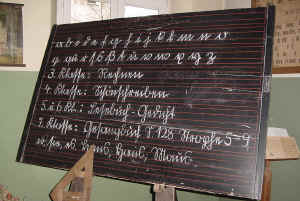 a b c d e f g h i j k l m n o
p q u r s ß t u v w x y z
3. Klasse: Rechnen
4. Klasse: Schönschreiben
5. u. 6. Kl.: Lesebuch-Gedicht
7. Klasse: Gesangbuch S. 128 Strophe 5-9
Haus, Maus.